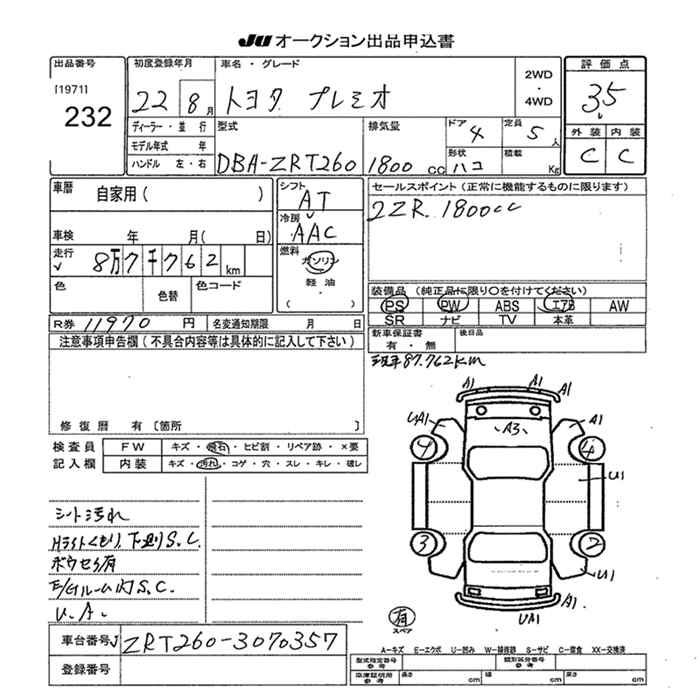 JU オークション出品申込書
出品番号
[1971]
232
初度登録年月
22 8月
車名・グレード
トヨタ プレミオ
2WD
・
4WD
評価点
3.5
外装 内装
C C
ディーラー・並行
モデル年式 年
ハンドル 左・右
型式
DBA-ZRT260
排気量
1800cc
ドア
4
定員
5人
形状
ハコ
積載
Kg
車歴
自家用( )
車検 年 月( 日)
走行
8万7千762km
色
色替
色コード
シフト
AT
冷房
AAC
燃料
ガソリン
軽油
( )
セールスポイント(正常に機能するものに限ります)
2ZR. 1800cc
装備品(純正品に限り○を付けてください)
PS PW ABS エアB AW
SR ナビ TV 本革
R券 11970円
名変通知期限 月 日
新車保証書
有・無
後日品
注意事項申告欄(不具合内容等は具体的に記入して下さい)
87.762km
修復歴 有〔箇所 〕
検査員
記入欄
FW キズ・飛石・ヒビ割・リペア跡・×要
内装 キズ・汚れ・コゲ・穴・スレ・キレ・破レ
シート汚れ
Hライトくもり、下廻りS.C.
ボウセイ有
E/Gルーム内S.C.
U.A.
A1 A1 A1
UA1 A3 A1
4 4
U1
3 2
U1
A1
UA1
有
スペア
車台番号 ZRT260-3070357
登録番号
A-キズ E-エクボ U-凹み W-補修跡 S-サビ C-腐食 XX-交換済
型式指定番号
参考
類別区分番号
参考
車庫証明用
参考
長さ cm 幅 cm 高さ cm